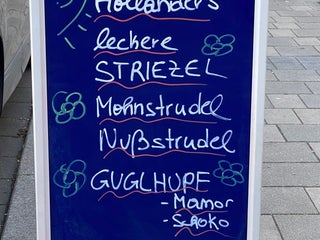 Hollanders
leckere
STRIEZEL
Mohnstrudel
Nußstrudel
GUGLHUPF
- Mamor
- Schoko